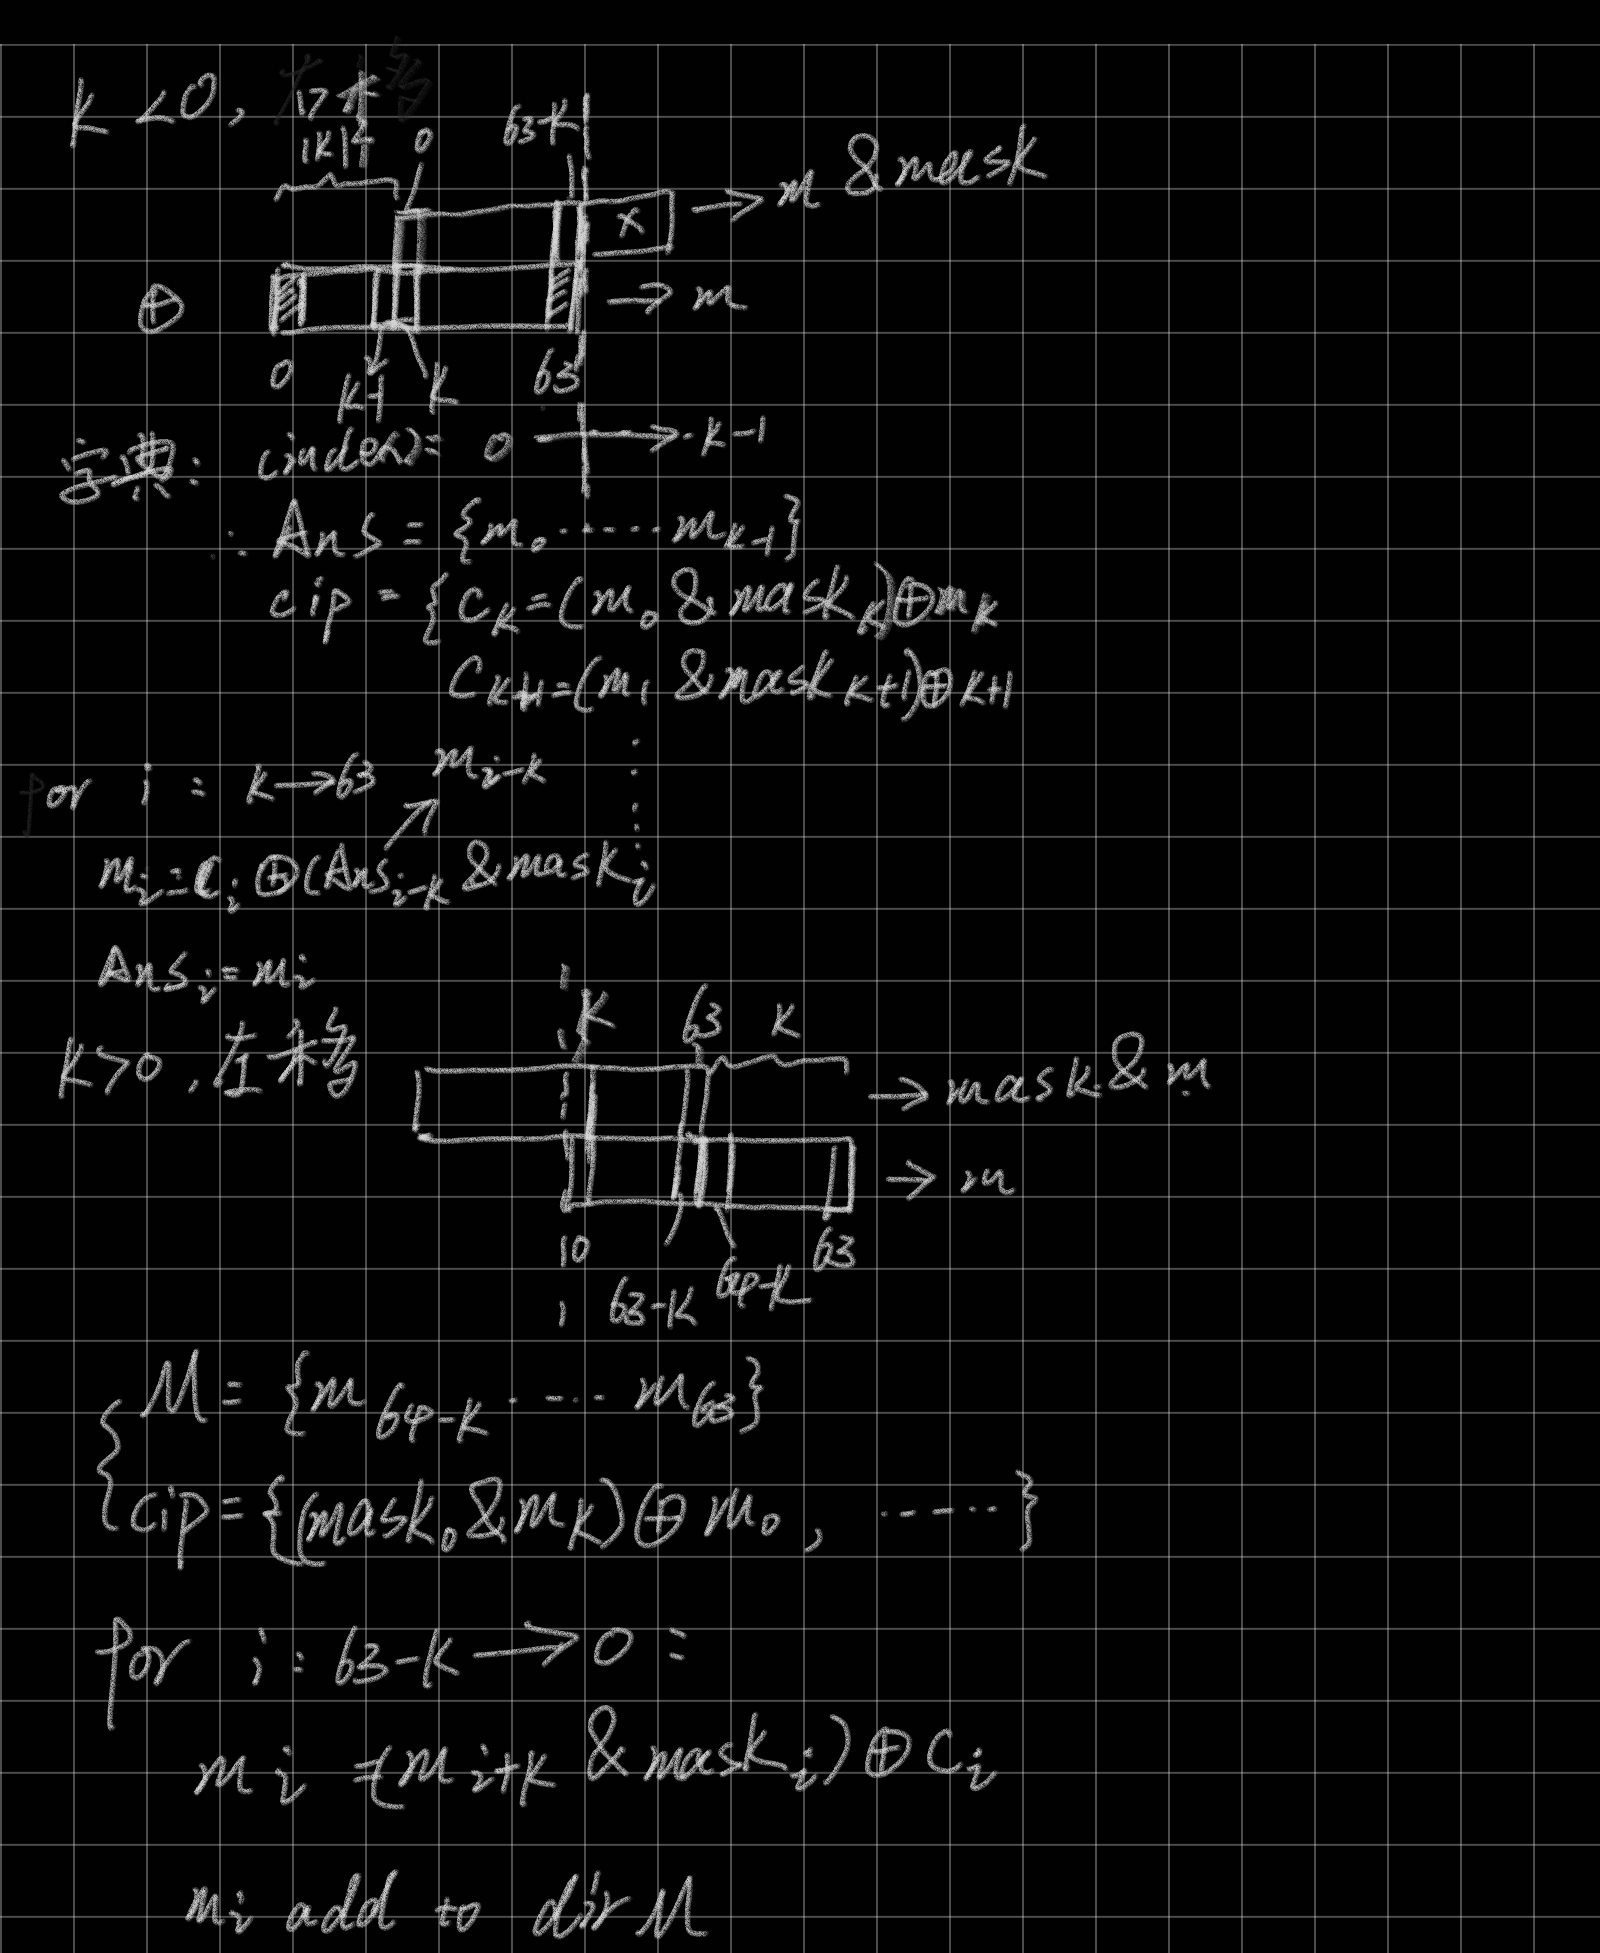 k <0, 右移
|K|位 0 63-K
→ m & mask
x
⊕ → m
0 k-1 k 63
字典: (index)= 0 → k-1
∴ Ans = {m₀ ...... m_{k-1}}
cip = {C_k=(m₀ & mask_k)⊕m_k
C_{k+1}=(m₁ & mask_{k+1})⊕k+1
for i : k→63 m_{i-k}
m_i=C_i ⊕(Ans_{i-k} & mask_i
Ans_i=m_i
K>0, 左移
K 63 K
→ mask & m
→ m
0 63-K 64-K 63
M = {m_{64-K} ..... m_{63}}
cip={(mask₀&m_K)⊕m₀, ......}
for i : 63-K → 0 :
m_i =(m_{i+K} & mask_i)⊕C_i
m_i add to dir M